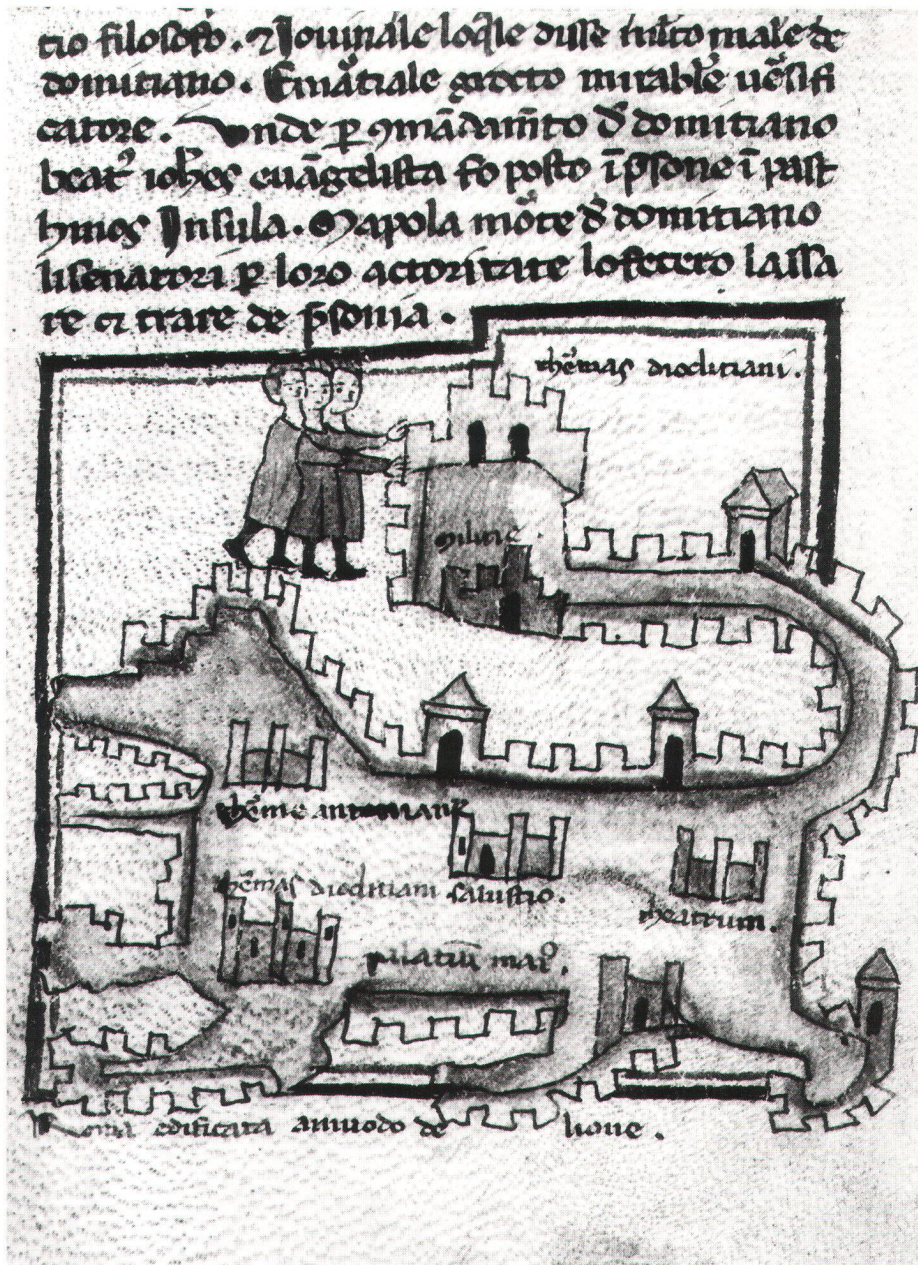 tio filosofo. ⁊ Jouinale lo q̄le disse m̄lto male de
domitiano. E marᷓtiale grēeto mirable uēsifi
catore. Vnde ꝑ ꝯmādam̄to đ domitiano
beatꝰ ioħes euāgelista fo posto ī p̄sone ī past
hmos Jnsula. Ma po la mōte đ domitiano
li senatori ꝑ loro actoritate lo fecero lassa
re et trare de p̄sonia.
thēmas dioclitiani.
militie
thēme antoniane
thēmas dioclitiani salustio.
theatrum.
palatiū maiꝰ.
Roma edificata a muodo de lione.